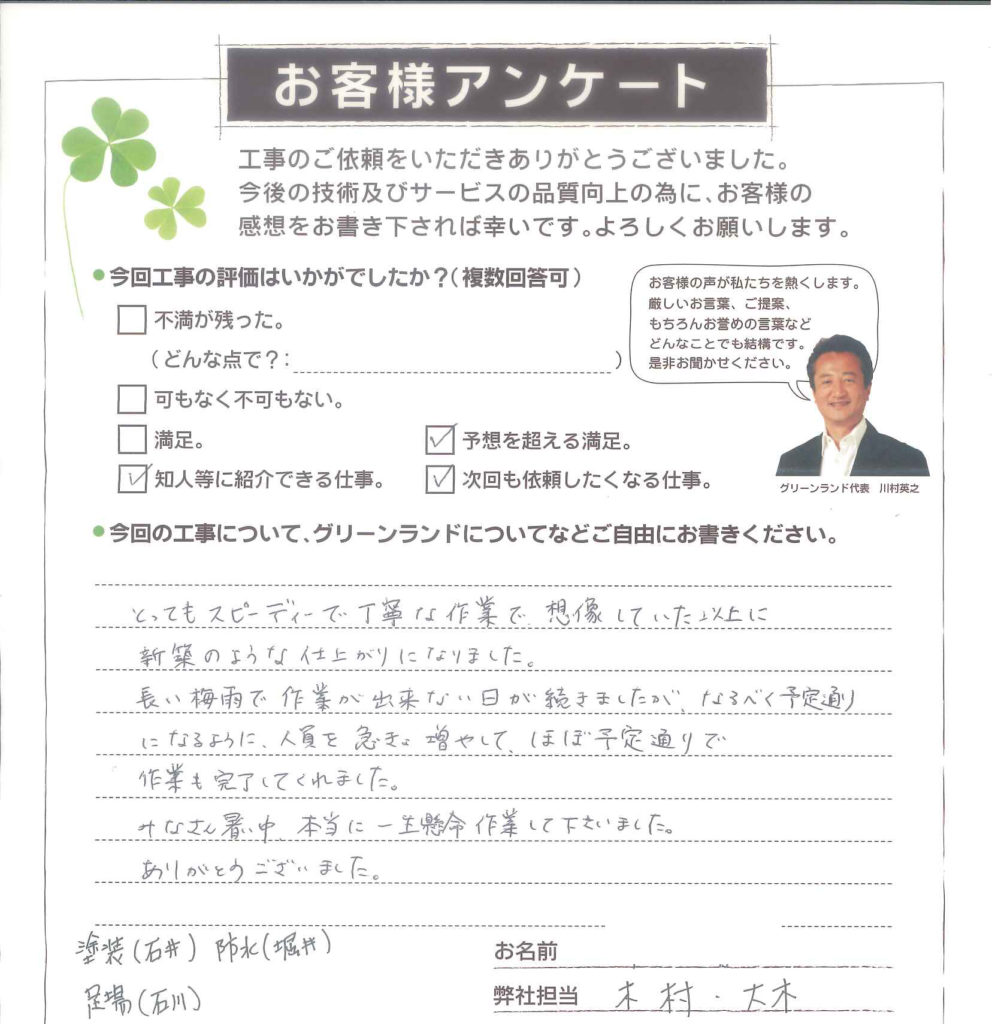 お客様アンケート
工事のご依頼をいただきありがとうございました。
今後の技術及びサービスの品質向上の為に、お客様の
感想をお書き下されば幸いです。よろしくお願いします。
今回工事の評価はいかがでしたか？（複数回答可）
不満が残った。
（どんな点で？：　）
可もなく不可もない。
満足。
予想を超える満足。
知人等に紹介できる仕事。
次回も依頼したくなる仕事。
お客様の声が私たちを熱くします。
厳しいお言葉、ご提案、
もちろんお誉めの言葉など
どんなことでも結構です。
是非お聞かせください。
グリーンランド代表　川村英之
今回の工事について、グリーンランドについてなどご自由にお書きください。
とってもスピーディーで丁寧な作業で、想像していた以上に
新築のような仕上がりになりました。
長い梅雨で作業が出来ない日が続きましたが、なるべく予定通り
になるように、人員を急きょ増やして、ほぼ予定通りで
作業も完了してくれました。
みなさん暑い中、本当に一生懸命作業して下さいました。
ありがとうございました。
塗装(石井) 防水(堀井)
足場(石川)
お名前
弊社担当　木村・大木